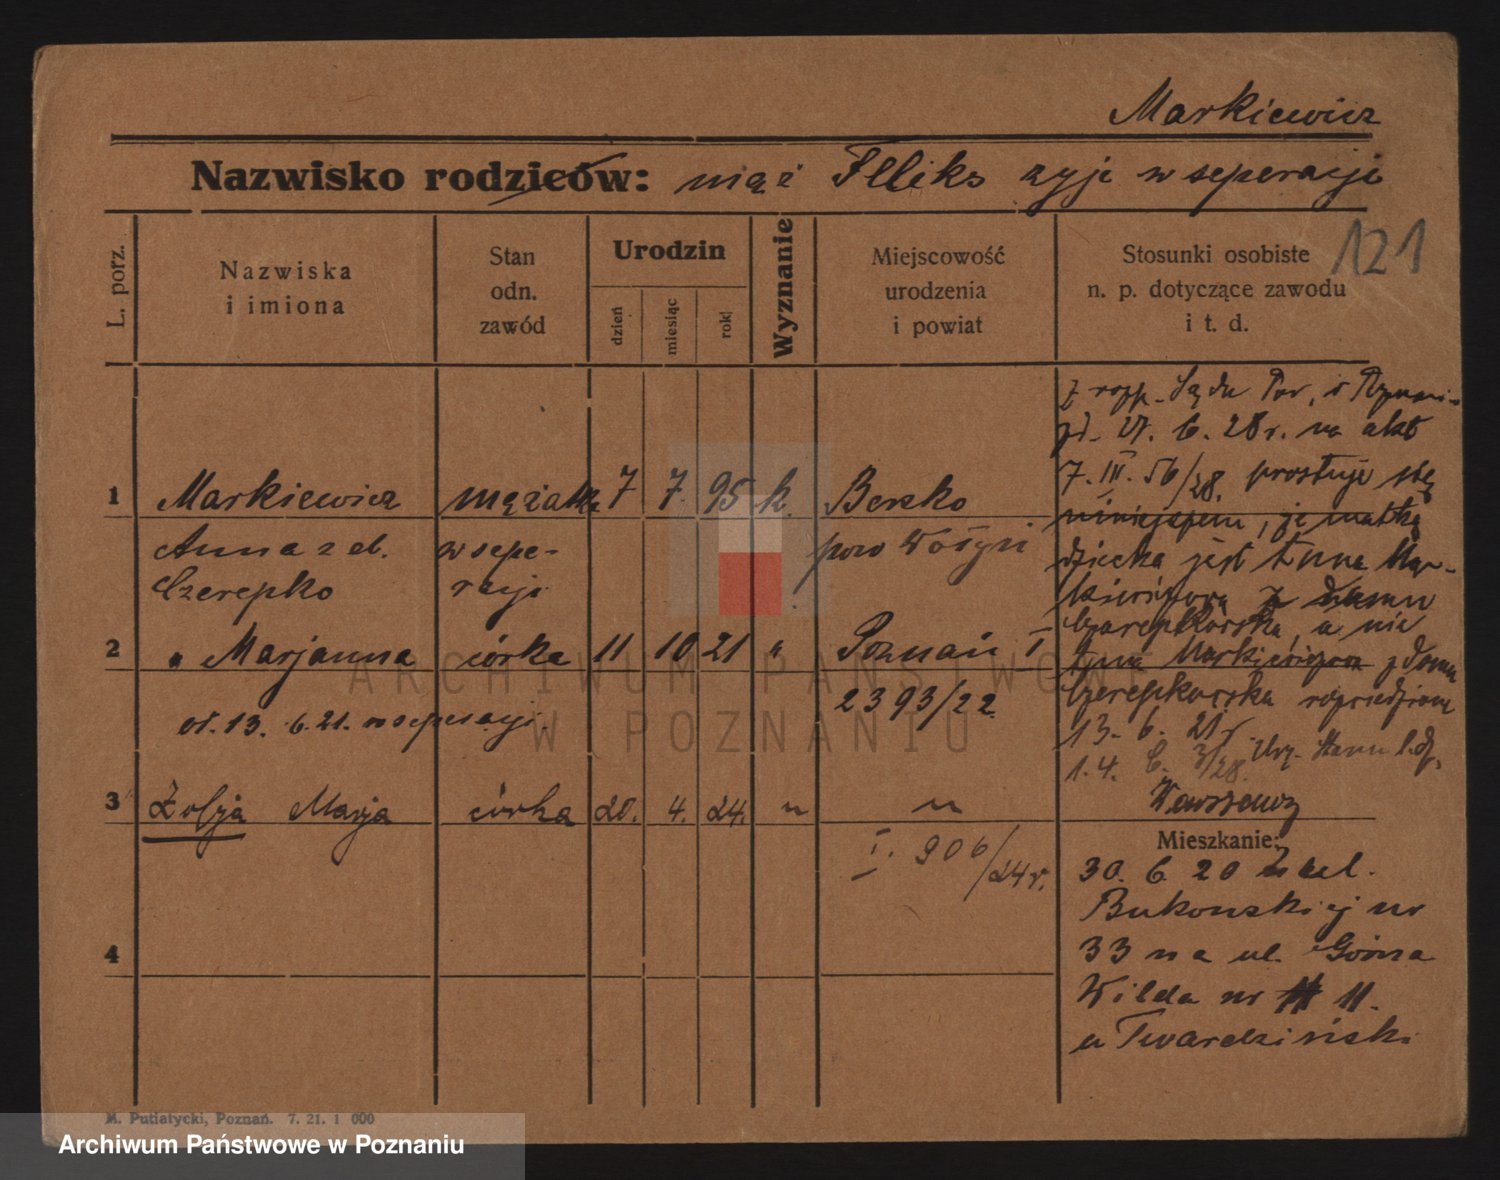 Markiewicz
Nazwisko rodziców: mąż Feliks żyje w seperacji
121
L. porz.
Nazwiska
i imiona
Stan
odn.
zawód
Urodzin
dzień
miesiąc
rok
Wyznanie
Miejscowość
urodzenia
i powiat
Stosunki osobiste
n. p. dotyczące zawodu
i t. d.
1 Markiewicz mężatka 7 7. 95 k. Berzko
Anna z d. w sepe- pow
Czerepko racji
2 " Marjanna córka 11 10 21 " Poznań I
2393/22
od. 13. 6. 21. w seperacji
3 Zofja Marja córka 20. 4. 24. " "
I. 906/24 r.
4
Z rozp. Sądu Pow. w Poznaniu
zd. 27. 6. 28 r. na akt
7. III. 56/28. prostuje się
niniejszem, że matką
dziecka jest Anna Mar-
kiewiczowa z domu
Czarepkorska, a nie
Anna Markiewiczowa z domu
Czerepkorska
13. 6. 21 r.
1. 4. C. 3/28. Urz. Stanu
Mieszkanie:
30. 6. 20 z ul.
Bukowskiej nr
33 na ul. Górna
Wilda nr 11.
u Twardziński
M. Putiatycki, Poznań. 7. 21. 1 000
ARCHIWUM PAŃSTWOWE
W POZNANIU
Archiwum Państwowe w Poznaniu